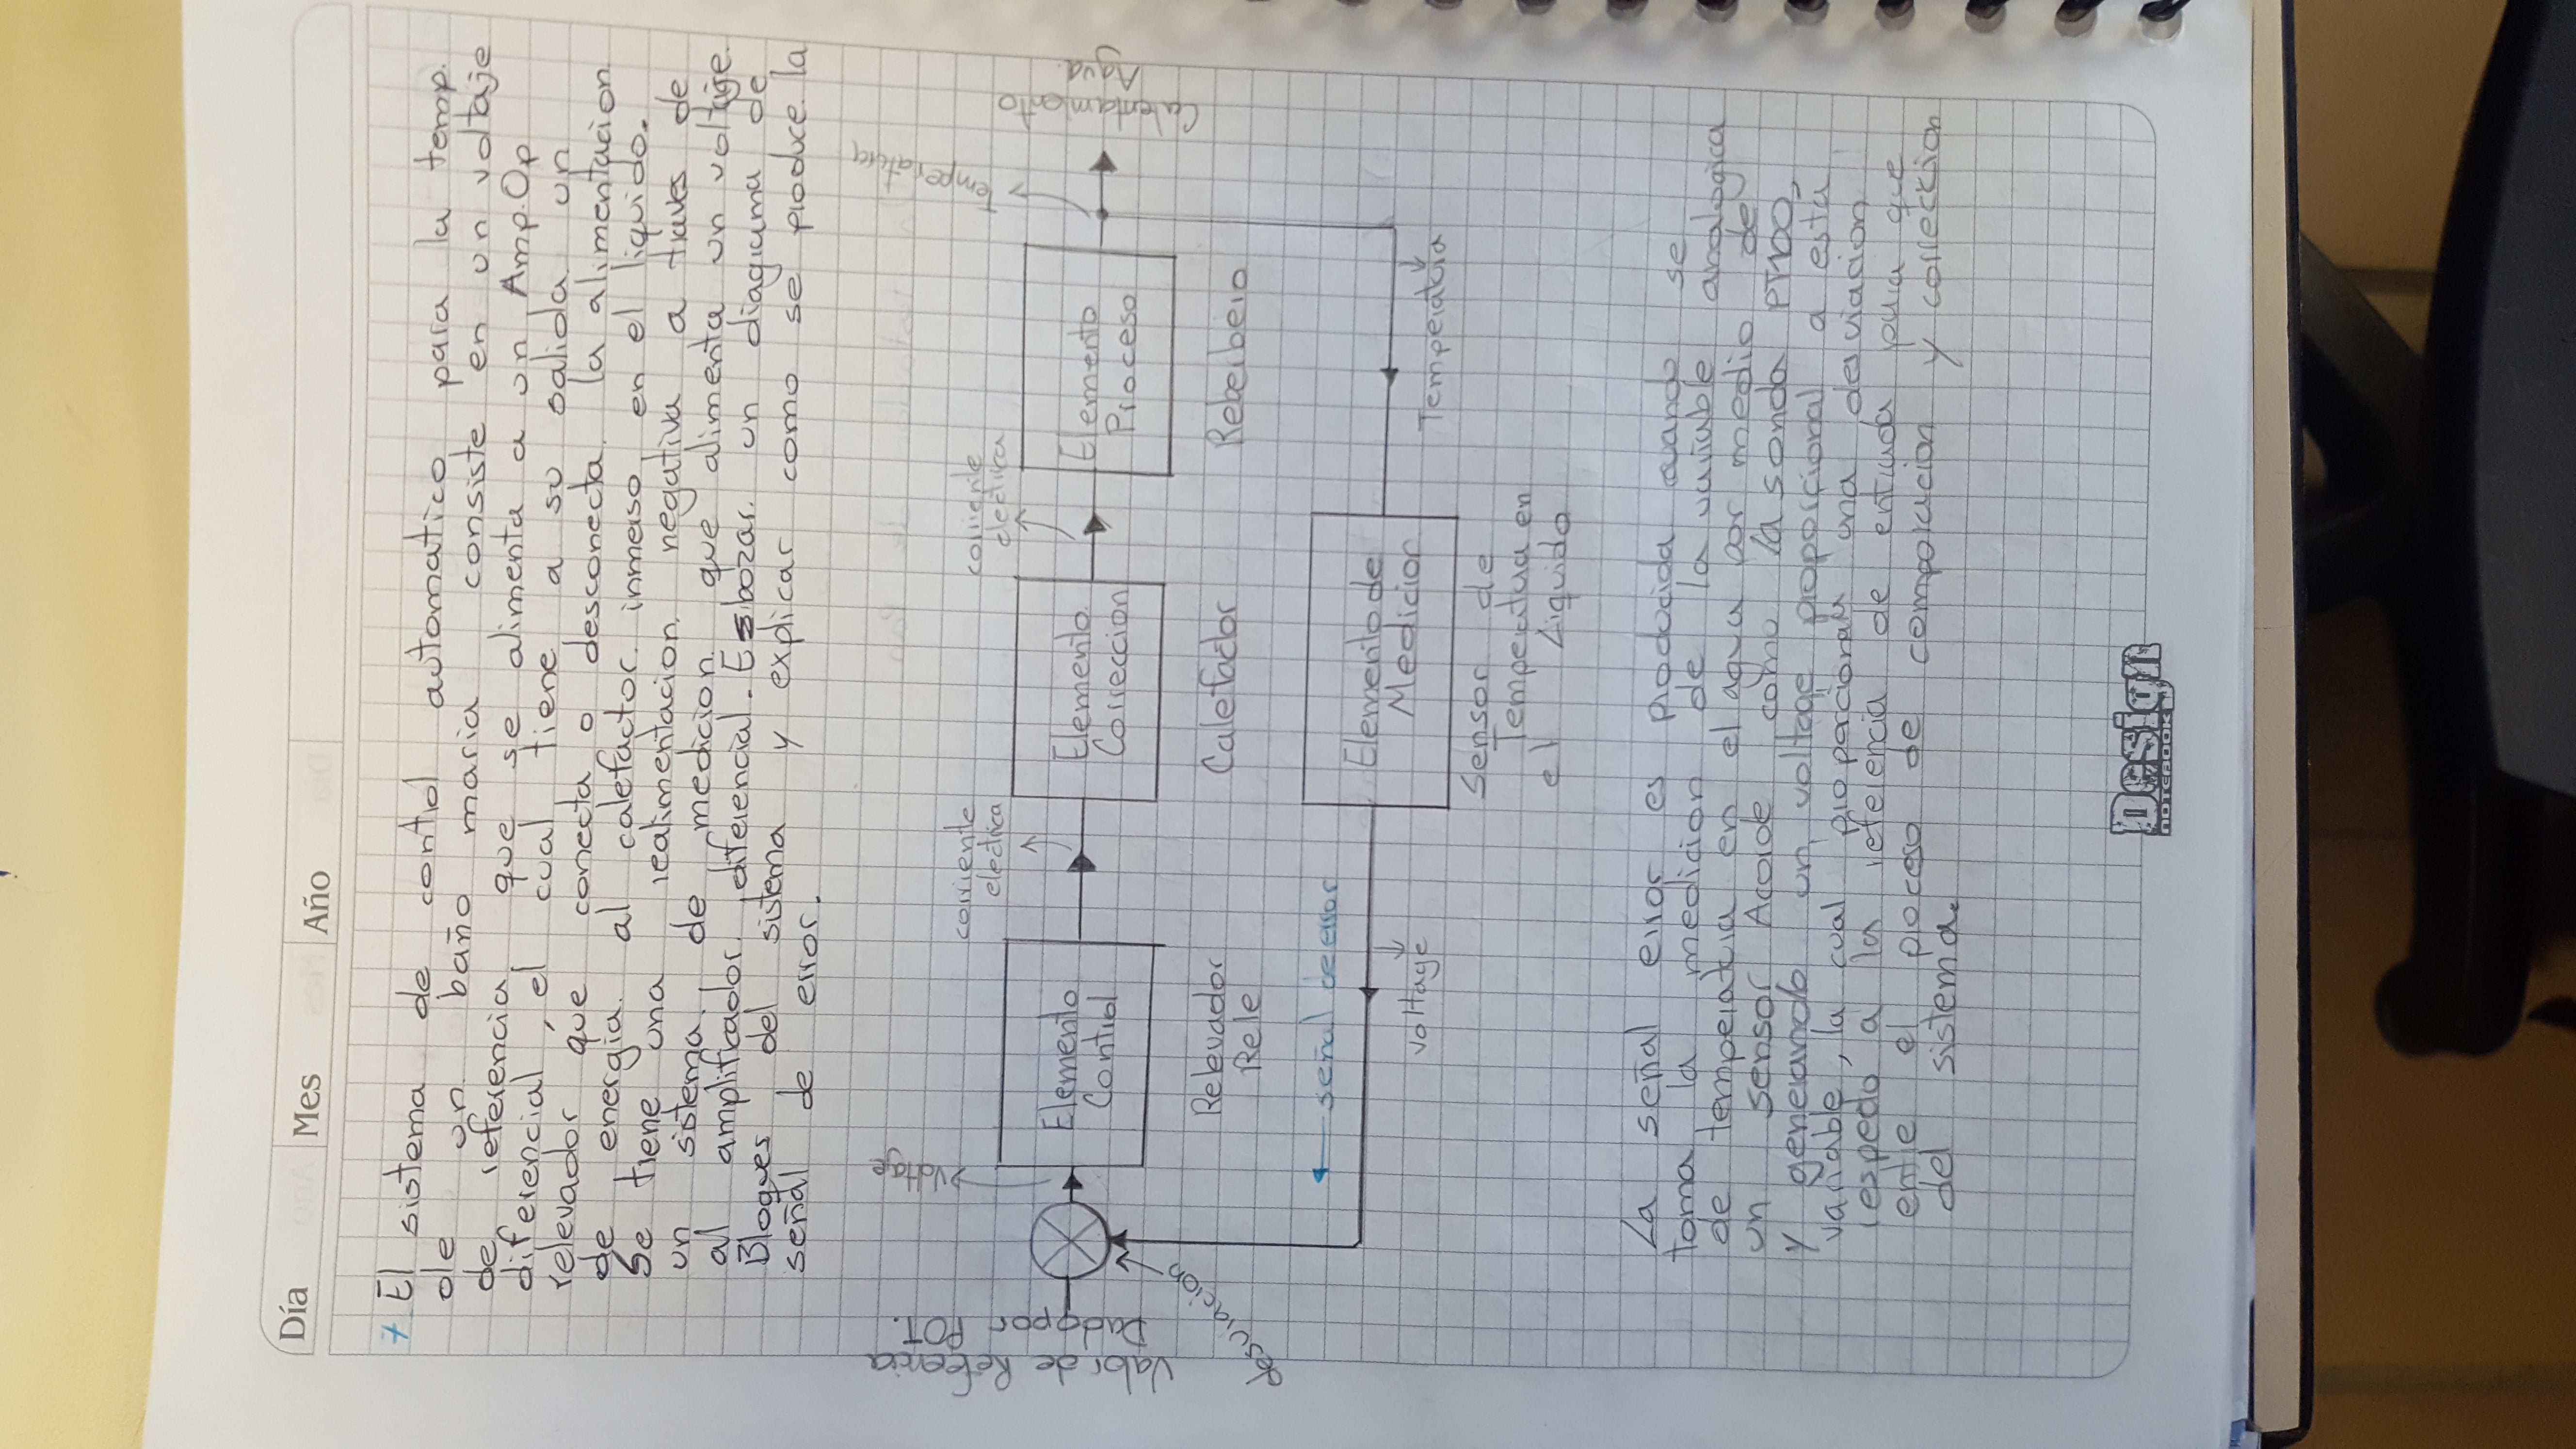 Día Mes Año
7 El sistema de control automatico para la temp.
de un baño maria consiste en un voltaje
de referencia que se alimenta a un Amp.Op
diferencial, el cual tiene a su salida un
relevador que conecta o desconecta la alimentacion
de energia al calefactor inmerso en el liquido.
Se tiene una realimentacion negativa a traves de
un sistema de medicion que alimenta un voltaje
al amplificador diferencial. Esbozar un diagrama de
Bloques del sistema y explicar como se produce la
señal de error.
Valor de Referencia
Dado por POT.
Voltaje
corriente
electrica
corriente
electrica
Temperatura
Elemento
Control
Elemento
Correccion
Elemento
Proceso
Calentamiento
Agua
desviacion
Relevador
Rele
Calefactor
Reberbero
señal de error
Elemento de
Medicion
voltage
Temperatura
Sensor de
Temperatura en
el Liquido
La señal error es producida cuando se
toma la medicion de la variable analogica
de temperatura en el agua por medio de
un sensor Acorde como la sonda PT100,
y generando un voltage proporcional a esta
variable, la cual proporcionara una desviacion
respecto a la referencia de entrada para que
entre el proceso de comparacion y correccion
del sistema.
Design
NOTEBOOK